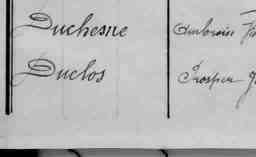 Duchesne Ambroise
Duclos Prosper